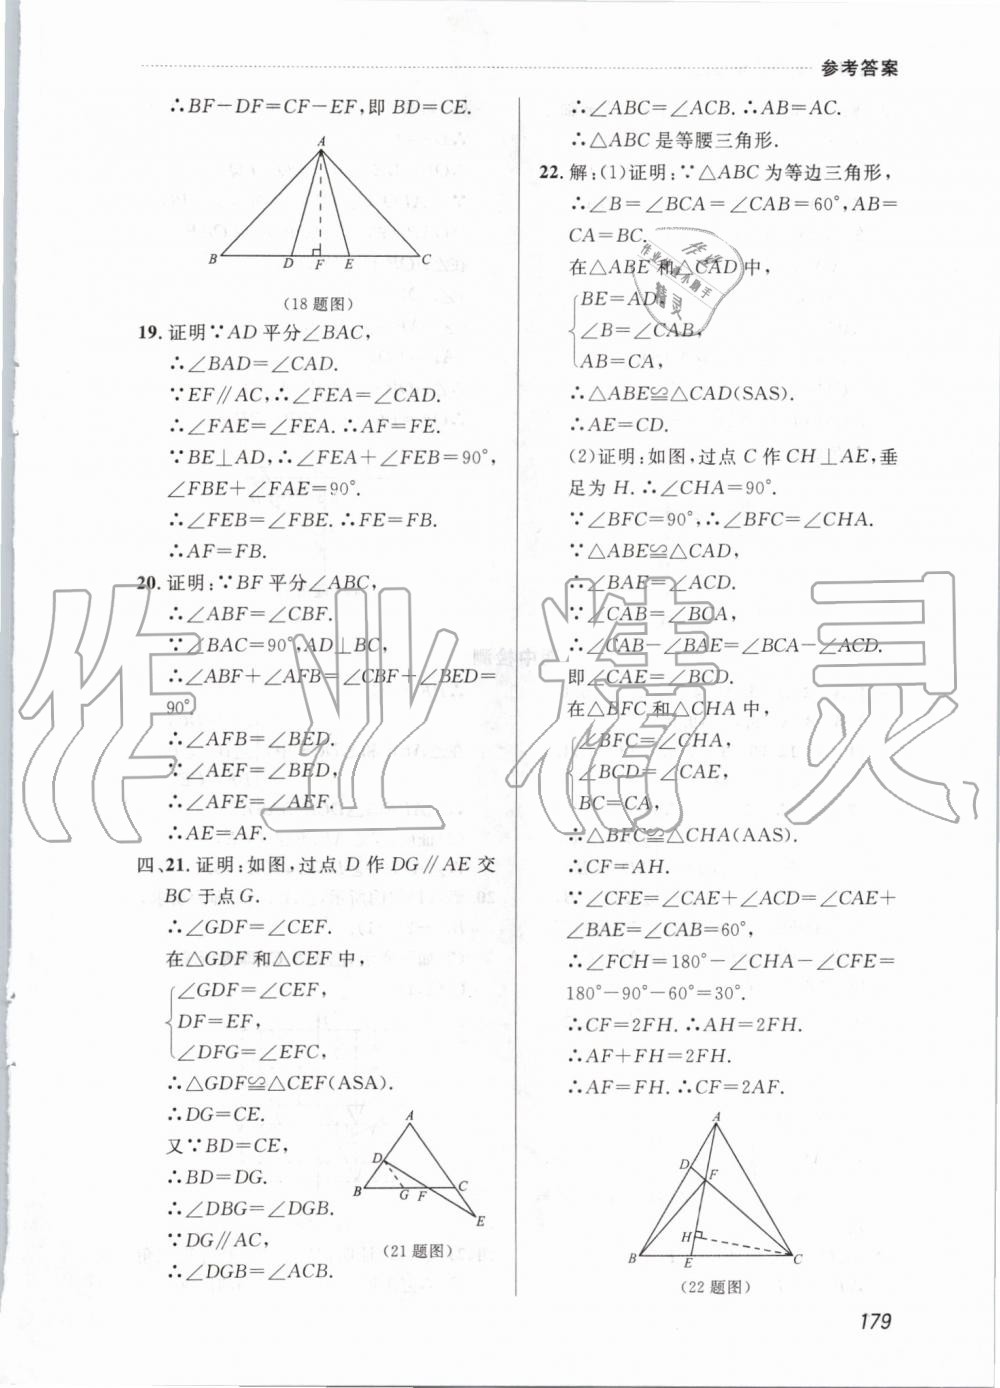 参考答案
∴BF－DF＝CF－EF,即 BD＝CE.
A
B
D
F
E
C
(18 题图)
19. 证明∵AD 平分∠BAC,
∴∠BAD＝∠CAD.
∵EF∥AC,∴∠FEA＝∠CAD.
∴∠FAE＝∠FEA.∴AF＝FE.
∵BE⊥AD,∴∠FEA＋∠FEB＝90°,
∠FBE＋∠FAE＝90°.
∴∠FEB＝∠FBE.∴FE＝FB.
∴AF＝FB.
20. 证明:∵BF 平分∠ABC,
∴∠ABF＝∠CBF.
∵∠BAC＝90°,AD⊥BC,
∴∠ABF＋∠AFB＝∠CBF＋∠BED＝
90°.
∴∠AFB＝∠BED.
∵∠AEF＝∠BED,
∴∠AFE＝∠AEF.
∴AE＝AF.
四、21. 证明:如图,过点 D 作 DG∥AE 交
BC 于点G.
∴∠GDF＝∠CEF.
在△GDF 和△CEF 中,
∠GDF＝∠CEF,
DF＝EF,
∠DFG＝∠EFC,
∴△GDF≌△CEF(ASA).
∴DG＝CE.
又∵BD＝CE,
∴BD＝DG.
∴∠DBG＝∠DGB.
∵DG∥AC,
∴∠DGB＝∠ACB.
A
D
B
G
F
C
E
(21 题图)
∴∠ABC＝∠ACB.∴AB＝AC.
∴△ABC 是等腰三角形.
22. 解:(1)证明:∵△ABC 为等边三角形,
∴∠B＝∠BCA＝∠CAB＝60°,AB＝
CA＝BC.
在△ABE 和△CAD 中,
BE＝AD,
∠B＝∠CAB,
AB＝CA,
∴△ABE≌△CAD(SAS).
∴AE＝CD.
(2)证明:如图,过点 C 作 CH⊥AE,垂
足为 H.∴∠CHA＝90°.
∵∠BFC＝90°,∴∠BFC＝∠CHA.
∵△ABE≌△CAD,
∴∠BAE＝∠ACD.
∵∠CAB＝∠BCA,
∴∠CAB－∠BAE＝∠BCA－∠ACD.
即∠CAE＝∠BCD.
在△BFC 和△CHA 中,
∠BFC＝∠CHA,
∠BCD＝∠CAE,
BC＝CA,
∴△BFC≌△CHA(AAS).
∴CF＝AH.
∵∠CFE＝∠CAE＋∠ACD＝∠CAE＋
∠BAE＝∠CAB＝60°,
∴∠FCH＝180°－∠CHA－∠CFE＝
180°－90°－60°＝30°.
∴CF＝2FH.∴AH＝2FH.
∴AF＋FH＝2FH.
∴AF＝FH.∴CF＝2AF.
A
D
F
H
B
E
C
(22 题图)
179
作业精灵